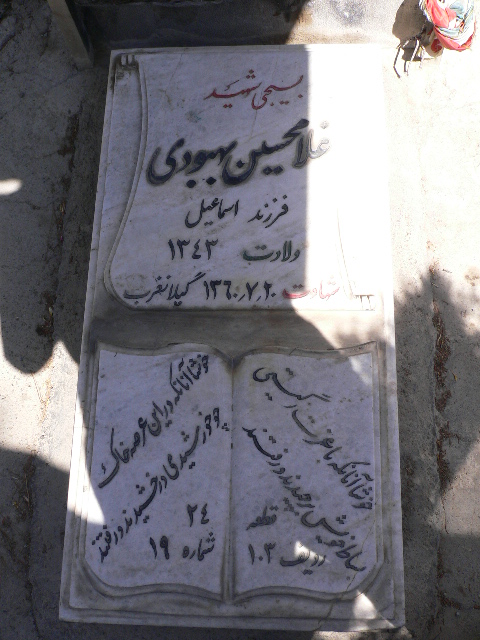 بسیجی شهید
غلامحسین بهبودی
فرزند اسماعیل
ولادت ۱۳۴۳
شهادت ۱۳۶۰٫۷٫۲۰ گیلانغرب
خوشا آنانکه با عزت ز گیتی
بساط خویش برچیدند و رفتند
قطعه
ردیف ۱۰۳
خوشا آنانکه در این عرصه خاک
چو خورشیدی درخشیدند و رفتند
۲۴
شماره ۱۹